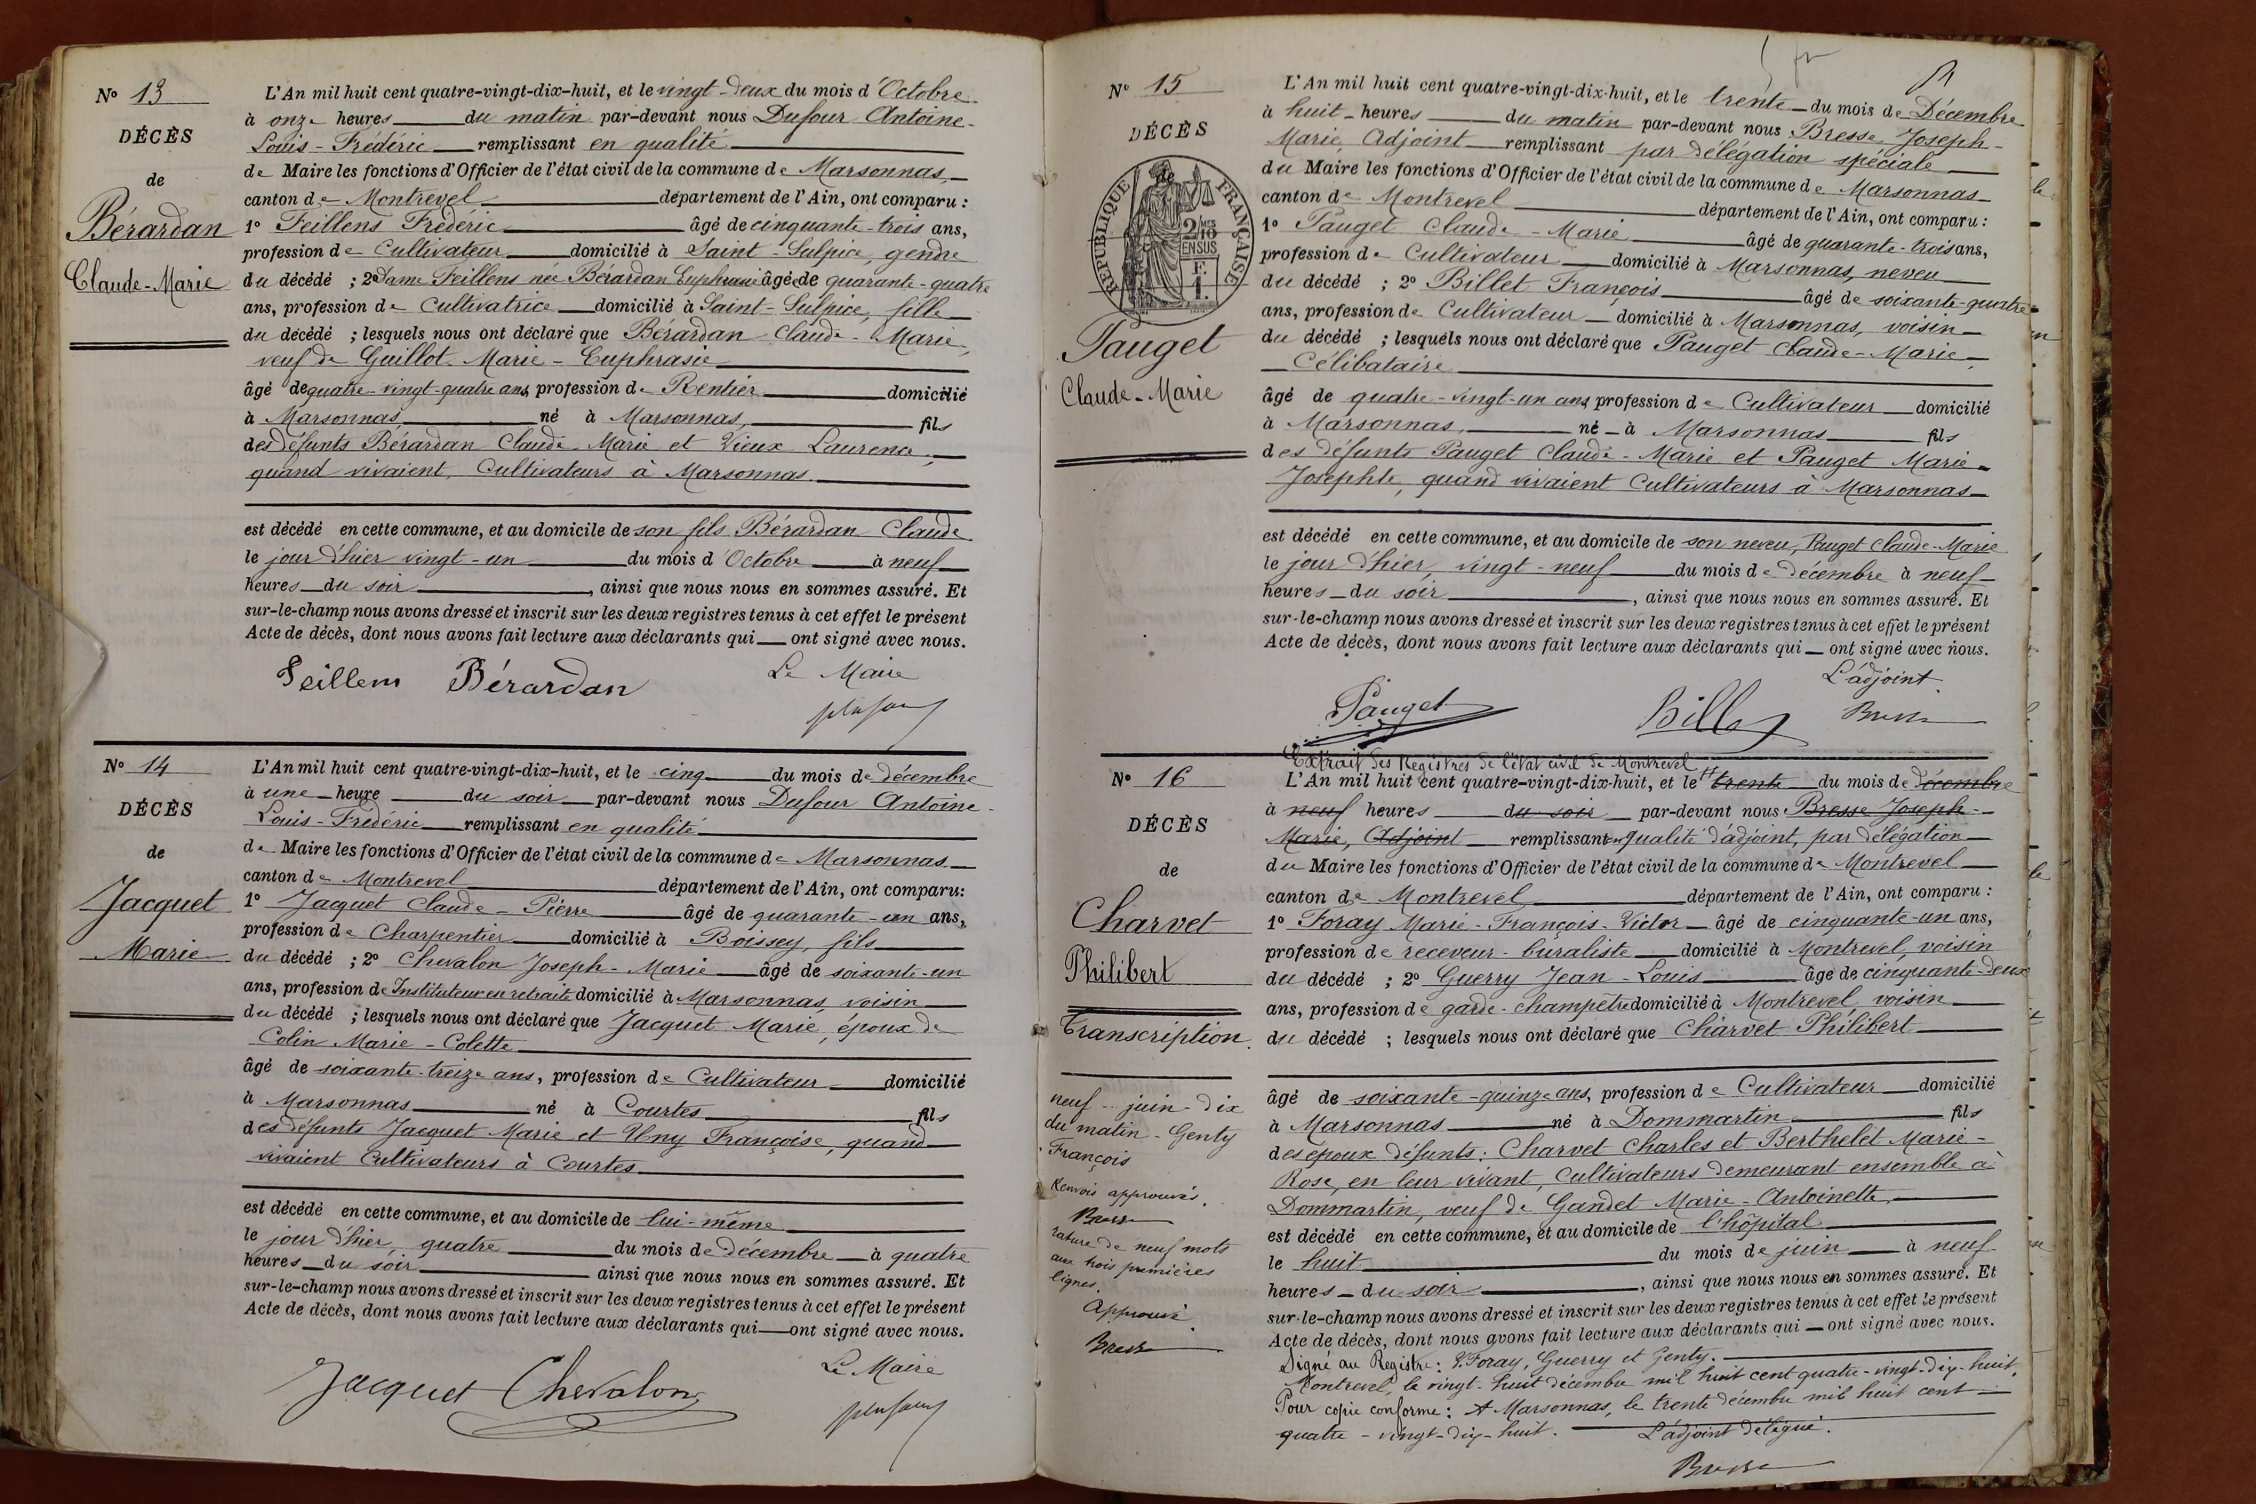 Nº 13
DÉCÈS
de
Bérardan
Claude-Marie
L'An mil huit cent quatre-vingt-dix-huit, et le vingt-deux du mois d'Octobre
à onze heures du matin par-devant nous Dufour Antoine-
Louis-Frédéric remplissant en qualité
de Maire les fonctions d'Officier de l'état civil de la commune de Marsonnas,
canton de Montrevel département de l'Ain, ont comparu :
1º Feillens Frédéric âgé de cinquante-trois ans,
profession de Cultivateur domicilié à Saint-Sulpice, gendre
du décédé ; 2º Dame Feillens née Bérardan Euphrasie âgée de quarante-quatre
ans, profession de Cultivatrice domicilié à Saint-Sulpice, fille
du décédé ; lesquels nous ont déclaré que Bérardan Claude-Marie,
veuf de Guillot Marie-Euphrasie
âgé de quatre-vingt-quatre ans, profession de Rentier domicilié
à Marsonnas, né à Marsonnas, fils
des défunts Bérardan Claude-Marie et Vieux Laurence,
quand vivaient, Cultivateurs à Marsonnas.
est décédé en cette commune, et au domicile de son fils Bérardan Claude
le jour d'hier vingt-un du mois d'Octobre à neuf
heures du soir, ainsi que nous nous en sommes assuré. Et
sur-le-champ nous avons dressé et inscrit sur les deux registres tenus à cet effet le présent
Acte de décès, dont nous avons fait lecture aux déclarants qui ont signé avec nous.
Feillens Bérardan Le Maire
Nº 14
DÉCÈS
de
Jacquet
Marie
L'An mil huit cent quatre-vingt-dix-huit, et le cinq du mois de décembre
à une heure du soir par-devant nous Dufour Antoine-
Louis-Frédéric remplissant en qualité
de Maire les fonctions d'Officier de l'état civil de la commune de Marsonnas
canton de Montrevel département de l'Ain, ont comparu:
1º Jacquet Claude-Pierre âgé de quarante-un ans,
profession de Charpentier domicilié à Boissey, fils
du décédé ; 2º Chevalon Joseph-Marie âgé de soixante-un
ans, profession de Instituteur en retraite domicilié à Marsonnas, voisin
du décédé ; lesquels nous ont déclaré que Jacquet Marie, époux de
Colin Marie-Colette
âgé de soixante-treize ans, profession de Cultivateur domicilié
à Marsonnas né à Courtes fils
des défunts Jacquet Marie et Uny Françoise, quand
vivaient Cultivateurs à Courtes
est décédé en cette commune, et au domicile de lui-même
le jour d'hier, quatre du mois de décembre à quatre
heures du soir ainsi que nous nous en sommes assuré. Et
sur-le-champ nous avons dressé et inscrit sur les deux registres tenus à cet effet le présent
Acte de décès, dont nous avons fait lecture aux déclarants qui ont signé avec nous.
Jacquet Chevalon Le Maire
Nº 15
DÉCÈS
de
RÉPUBLIQUE FRANÇAISE
2/10 EN SUS
Pauget
Claude-Marie
L'An mil huit cent quatre-vingt-dix-huit, et le trente du mois de Décembre
à huit heures du matin par-devant nous Bresse Joseph-
Marie, Adjoint remplissant par délégation spéciale
du Maire les fonctions d'Officier de l'état civil de la commune de Marsonnas
canton de Montrevel département de l'Ain, ont comparu :
1º Pauget Claude-Marie âgé de quarante-trois ans,
profession de Cultivateur domicilié à Marsonnas, neveu
du décédé ; 2º Billet François âgé de soixante-quatre
ans, profession de Cultivateur domicilié à Marsonnas, voisin
du décédé ; lesquels nous ont déclaré que Pauget Claude-Marie,
Célibataire
âgé de quatre-vingt-un ans, profession de Cultivateur domicilié
à Marsonnas, né à Marsonnas fils
des défunts Pauget Claude-Marie et Pauget Marie-
Josephte, quand vivaient Cultivateurs à Marsonnas
est décédé en cette commune, et au domicile de son neveu, Pauget Claude-Marie
le jour d'hier, vingt-neuf du mois de décembre à neuf
heures du soir, ainsi que nous nous en sommes assuré. Et
sur-le-champ nous avons dressé et inscrit sur les deux registres tenus à cet effet le présent
Acte de décès, dont nous avons fait lecture aux déclarants qui ont signé avec nous.
L'adjoint
Pauget Billet Bresse
Nº 16
DÉCÈS
de
Charvet
Philibert
Transcription.
neuf juin dix
du matin Genty
François
Renvois approuvés.
Bresse
rature de neuf mots
aux trois premières
lignes.
Approuvé.
Bresse
Extrait des Registres de l'état civil de Montrevel
L'An mil huit cent quatre-vingt-dix-huit, et le trente du mois de décembre
à neuf heures du soir par-devant nous Bresse Joseph-
Marie, Adjoint remplissant en qualité d'adjoint, par délégation
du Maire les fonctions d'Officier de l'état civil de la commune de Montrevel
canton de Montrevel département de l'Ain, ont comparu :
1º Foray Marie-François-Victor âgé de cinquante-un ans,
profession de receveur-buraliste domicilié à Montrevel, voisin
du décédé ; 2º Guerry Jean-Louis âgé de cinquante-deux
ans, profession de garde-champêtre domicilié à Montrevel, voisin
du décédé ; lesquels nous ont déclaré que Charvet Philibert
âgé de soixante-quinze ans, profession de Cultivateur domicilié
à Marsonnas né à Dommartin fils
des époux défunts: Charvet Charles et Berthelet Marie-
Rose, en leur vivant, Cultivateurs demeurant ensemble à
Dommartin, veuf de Gandet Marie-Antoinette,
est décédé en cette commune, et au domicile de l'hôpital
le huit du mois de juin à neuf
heures du soir, ainsi que nous nous en sommes assuré. Et
sur-le-champ nous avons dressé et inscrit sur les deux registres tenus à cet effet le présent
Acte de décès, dont nous avons fait lecture aux déclarants qui ont signé avec nous.
Signé au Registre: V. Foray, Guerry et Genty.
Montrevel, le vingt-huit décembre mil huit cent quatre-vingt-dix-huit.
Pour copie conforme: A Marsonnas, le trente décembre mil huit cent
quatre-vingt-dix-huit. L'adjoint délégué.
Bresse